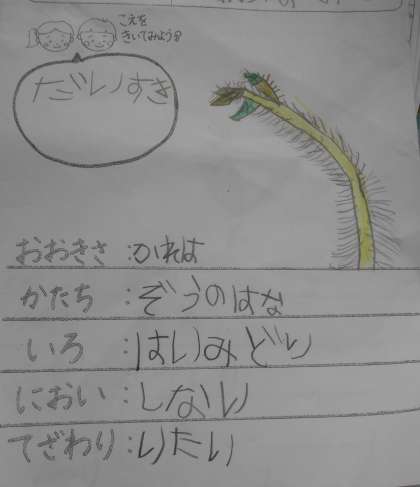 こえを
きいてみよう
だいすき
おおきさ:かれは
かたち:ぞうのはな
いろ:はいみどり
におい:しない
てざわり:いたい